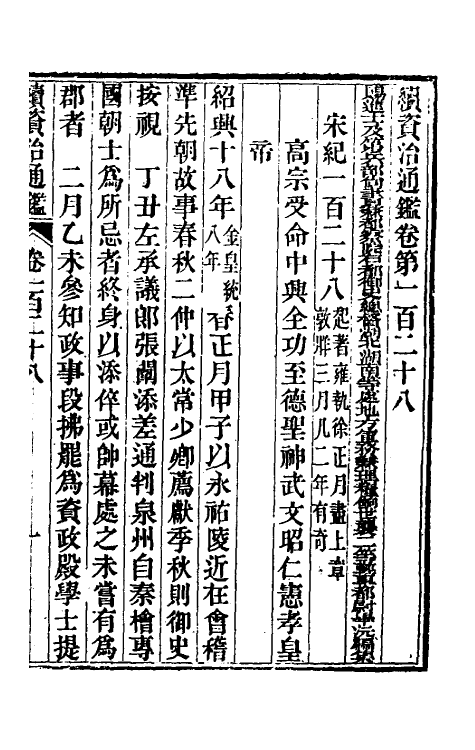 續資治通鑑卷第一百二十八
賜進士及第兵部尚書兼都察院右都御史總督湖北湖南等處地方軍務兼理糧餉世襲二等輕車都尉畢沅編集
宋紀一百二十八起著雍執徐正月盡上章敦牂三月凡二年有奇
高宗受命中興全功至德聖神武文昭仁憲孝皇
帝
紹興十八年金皇統八年春正月甲子以永祐陵近在會稽
準先朝故事春秋二仲以太常少卿薦獻季秋則御史
按視 丁丑左承議郎張闡添差通判泉州自秦檜專
國朝士爲所忌者終身以添倅或帥幕處之未嘗有爲
郡者 二月乙未參知政事段拂罷爲資政殿學士提
續資治通鑑 卷一百二十八 一